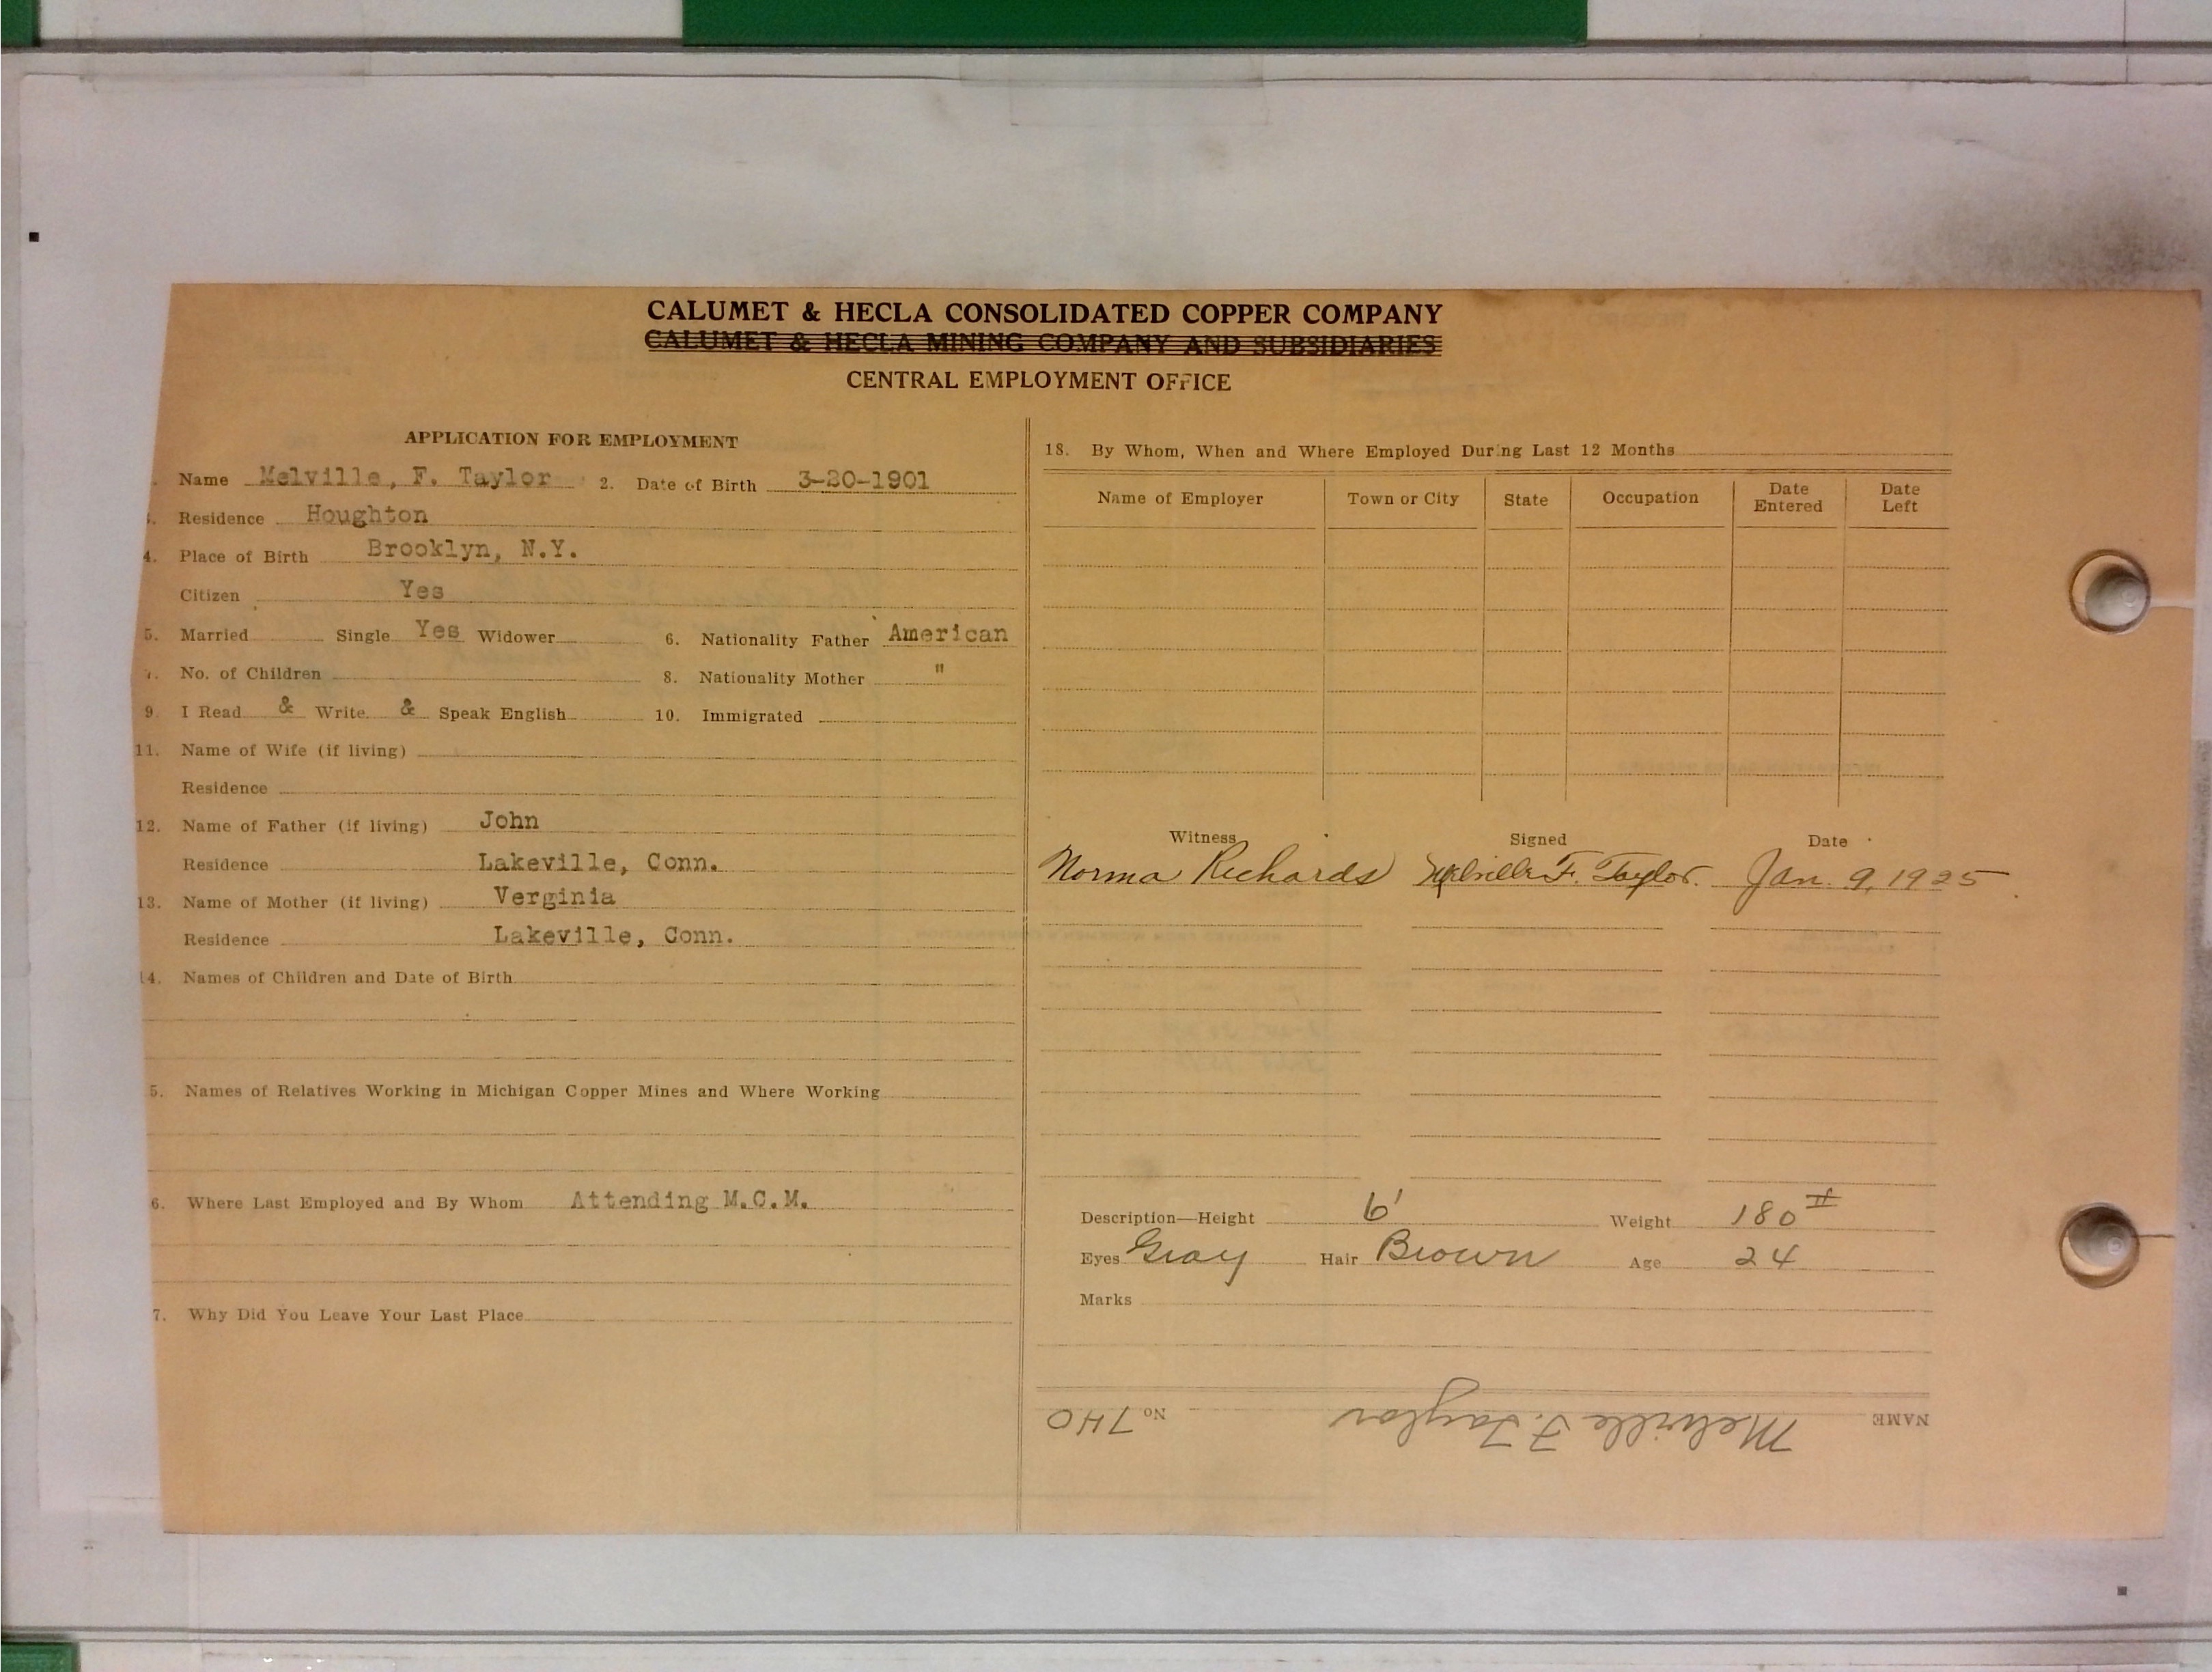 CALUMET & HECLA CONSOLIDATED COPPER COMPANY
CALUMET & HECLA MINING COMPANY AND SUBSIDIARIES
CENTRAL EMPLOYMENT OFFICE
APPLICATION FOR EMPLOYMENT
Name Melville, F. Taylor 2. Date of Birth 3-20-1901
Residence Houghton
4. Place of Birth Brooklyn, N.Y.
Citizen Yes
5. Married Single Yes Widower 6. Nationality Father American
7. No. of Children 8. Nationality Mother "
9. I Read & Write & Speak English 10. Immigrated
11. Name of Wife (if living)
Residence
12. Name of Father (if living) John
Residence Lakeville, Conn.
13. Name of Mother (if living) Verginia
Residence Lakeville, Conn.
14. Names of Children and Date of Birth
5. Names of Relatives Working in Michigan Copper Mines and Where Working
6. Where Last Employed and By Whom Attending M.C.M.
7. Why Did You Leave Your Last Place
18. By Whom, When and Where Employed During Last 12 Months
Name of Employer Town or City State Occupation Date Entered Date Left
Witness Signed Date
Norma Richards Melville F. Taylor. Jan. 9, 1925
Description—Height 6' Weight 180 #
Eyes Gray Hair Brown Age 24
Marks
NAME Melville F. Taylor No 740